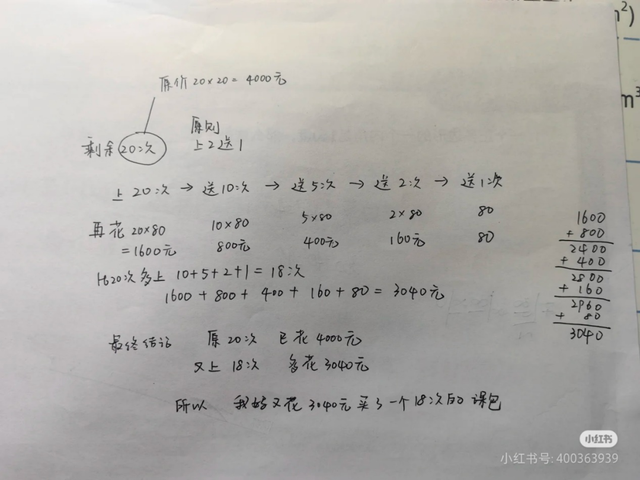 m²)
m³
原价 20×20 = 4000元
剩余 20次
原则
上2送1
上 20次 → 送10次 → 送5次 → 送2次 → 送1次
再花 20×80 10×80 5×80 2×80 80
=1600元 800元 400元 160元 80
比20次多上 10+5+2+1 = 18次
1600 + 800 + 400 + 160 + 80 = 3040元
1600
+ 800
2400
+ 400
2800
+ 160
2960
+ 80
3040
最终结论 原20次 已花4000元
又上 18次 多花3040元
所以 我妈又花3040元买了一个18次的课包
小红书
小红书号: 400363939